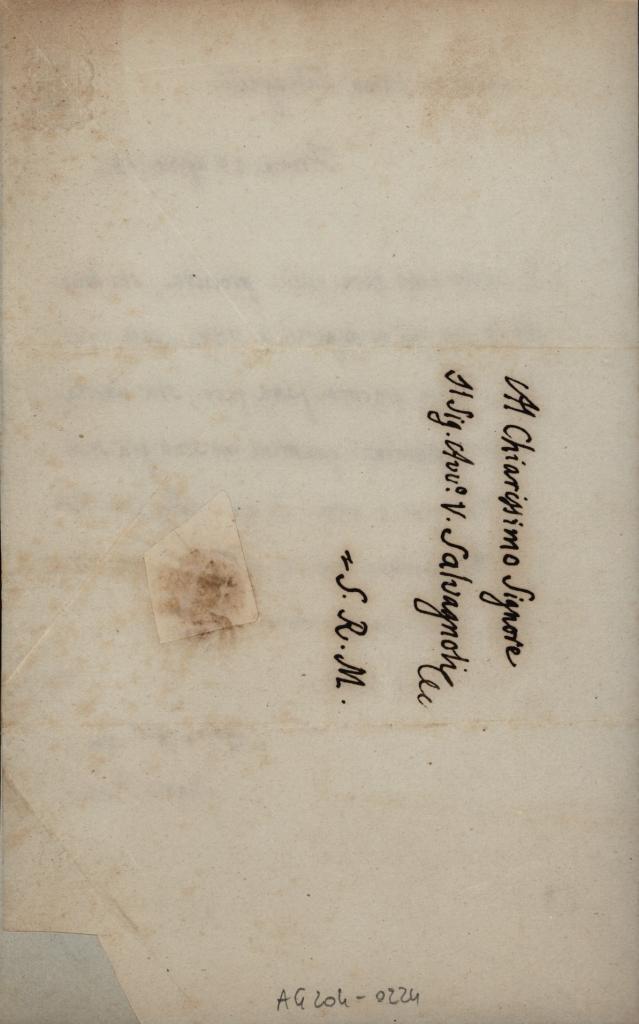 Al Chiarissimo Signore
Il Sig. Avv.º V. Salvagnoli &c
= S. R. M.
AG 204-0224